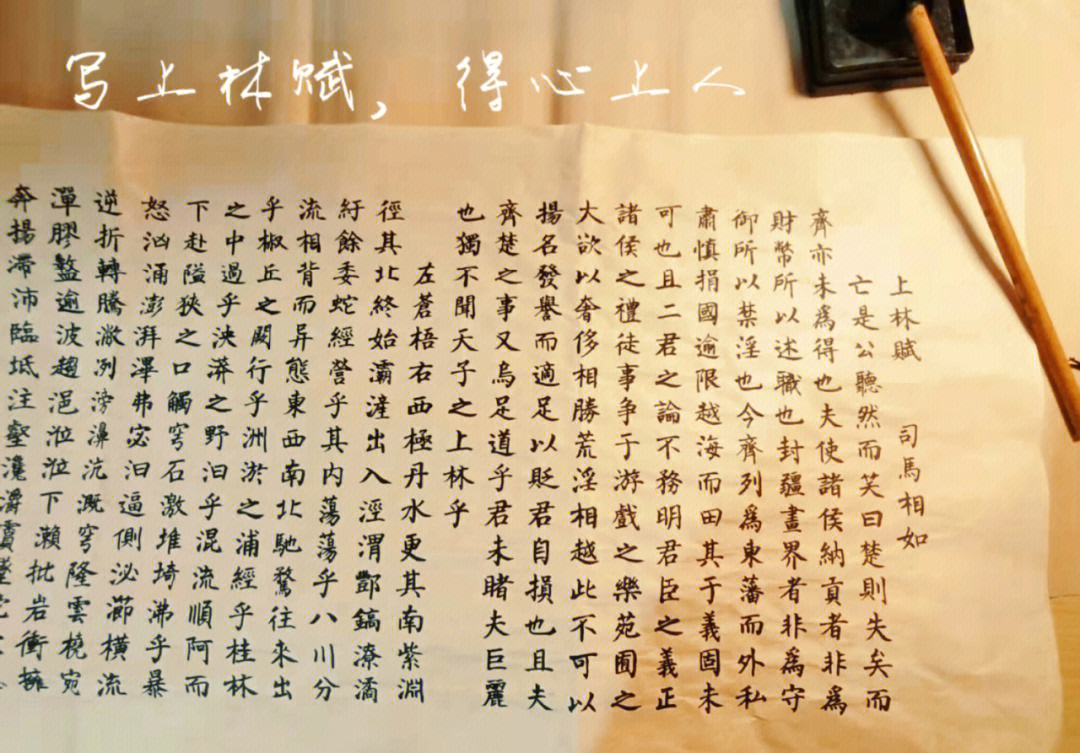 写上林赋，得心上人
上林賦 司馬相如
亡是公聽然而笑曰楚則失矣而
齊亦未爲得也夫使諸侯納貢者非爲
財幣所以述職也封疆畫界者非爲守
御所以禁淫也今齊列爲東藩而外私
肅慎捐國逾限越海而田其于義固未
可也且二君之論不務明君臣之義正
諸侯之禮徒事争于游戲之樂苑囿之
大欲以奢侈相勝荒淫相越此不可以
揚名發譽而適足以貶君自損也且夫
齊楚之事又烏足道乎君未睹夫巨麗
也獨不聞天子之上林乎
左蒼梧右西極丹水更其南紫淵
徑其北終始灞滻出入涇渭酆鎬潦潏
紆餘委蛇經營乎其内蕩蕩乎八川分
流相背而异態東西南北馳騖往來出
乎椒丘之闕行乎洲淤之浦經乎桂林
之中過乎泱莽之野汩乎混流順阿而
下赴隘狹之口觸穹石激堆埼沸乎暴
怒洶涌澎湃滭弗宓汩逼側泌瀄橫流
逆折轉騰潎洌滂濞沆溉穹隆雲橈宛
潬膠盭逾波趨浥涖涖下瀨批岩衝擁
奔揚滯沛臨坻注壑瀺灂霣墜